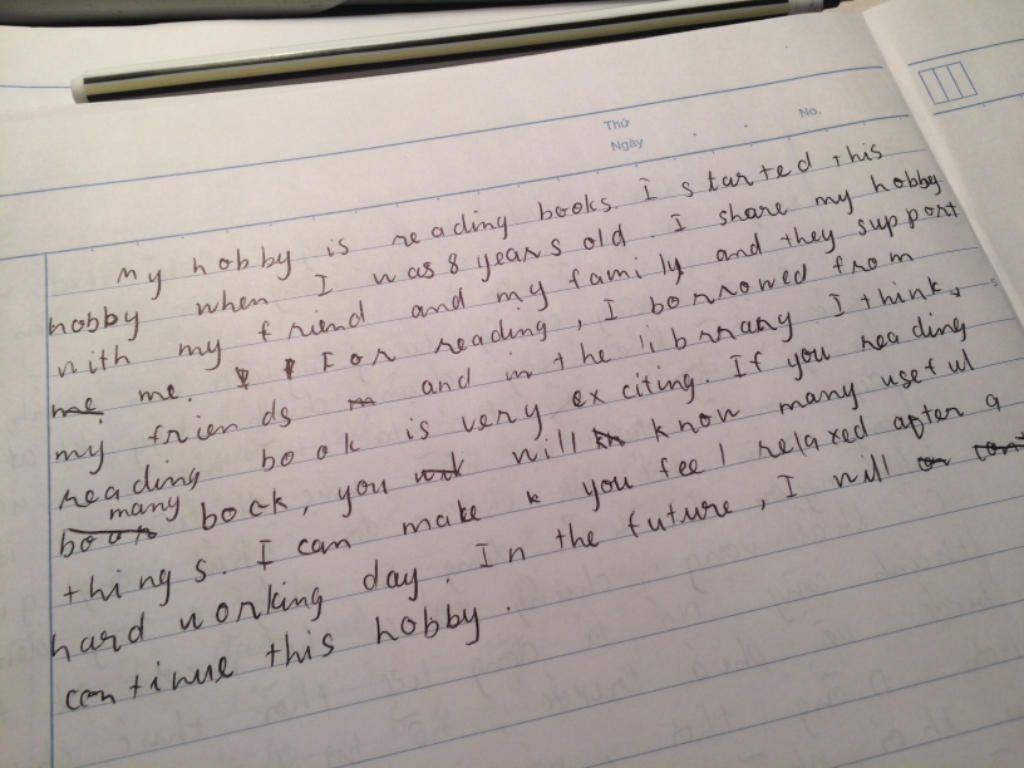 Thứ
Ngày
No.
My hobby is reading books. I started this
hobby when I was 8 years old. I share my hobby
with my friend and my family and they support
me me. For reading, I borrowed from
my friends and in the library I think,
reading book is very exciting. If you reading
many
book book, you will know many useful
things. I can make you feel relaxed after a
hard working day. In the future, I will
continue this hobby.